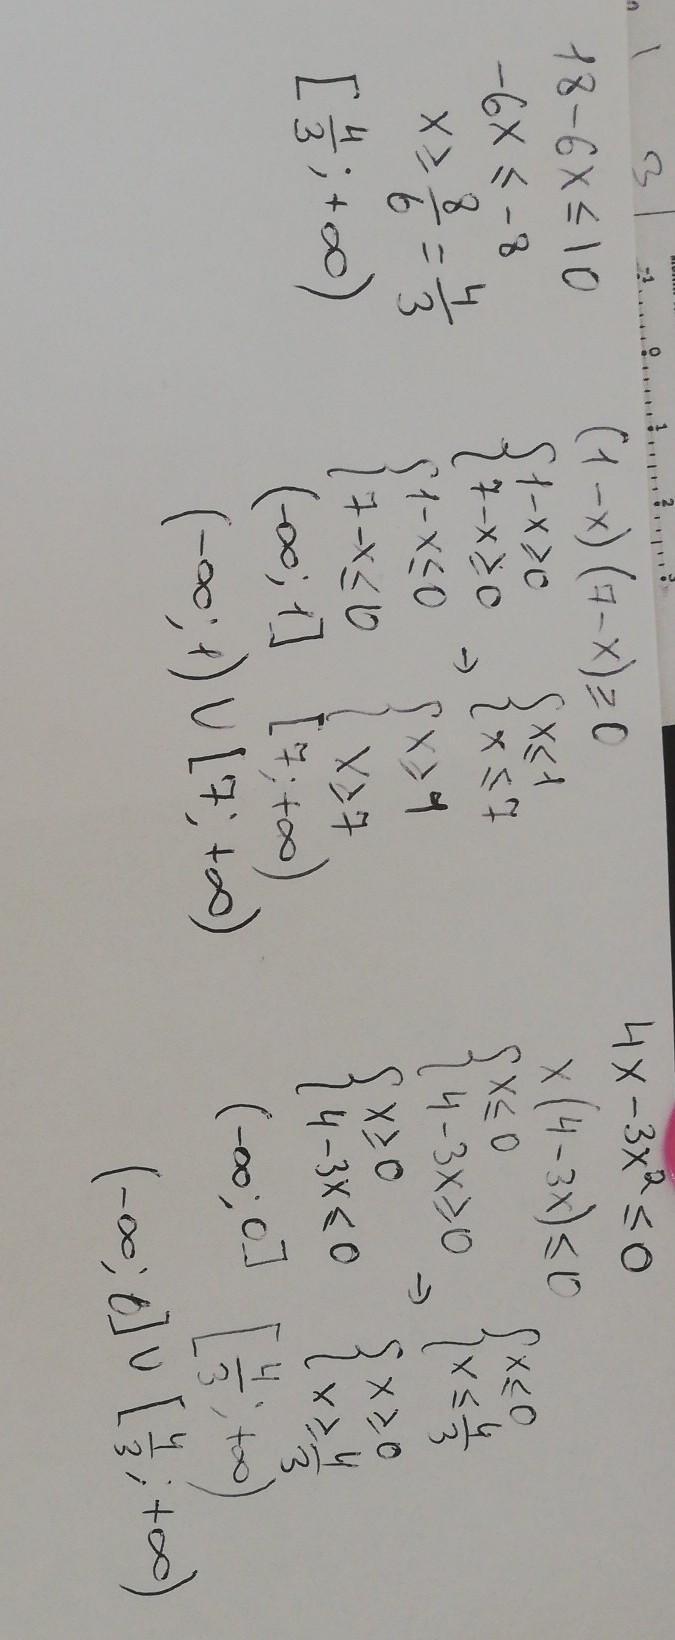 18-6x≤10
-6x≤-8
x≥8/6=4/3
[4/3;+∞)
(1-x)(7-x)≥0
{1-x≥0
{7-x≥0
→
{x≤1
{x≤7
{1-x≤0
{7-x≤0
{x≥1
{x≥7
(-∞;1] [7;+∞)
(-∞;1)∪[7;+∞)
4x-3x²≤0
x(4-3x)≤0
{x≤0
{4-3x≥0
→
{x≤0
{x≤4/3
{x≥0
{4-3x≤0
{x≥0
{x≥4/3
(-∞;0] [4/3;+∞)
(-∞;0]∪[4/3;+∞)
-1 0 1 2 3